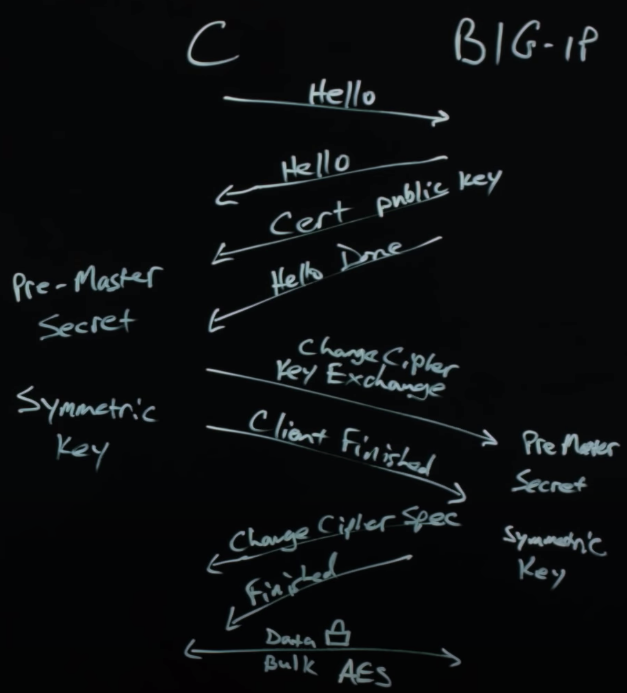 C
BIG-IP
Hello
Hello
Cert public key
Hello Done
Pre-Master
Secret
Change Cipher
Key Exchange
Symmetric
Key
Client Finished
Pre Master
Secret
Change Cipher Spec
Symmetric
Key
Finished
Data
Bulk AES